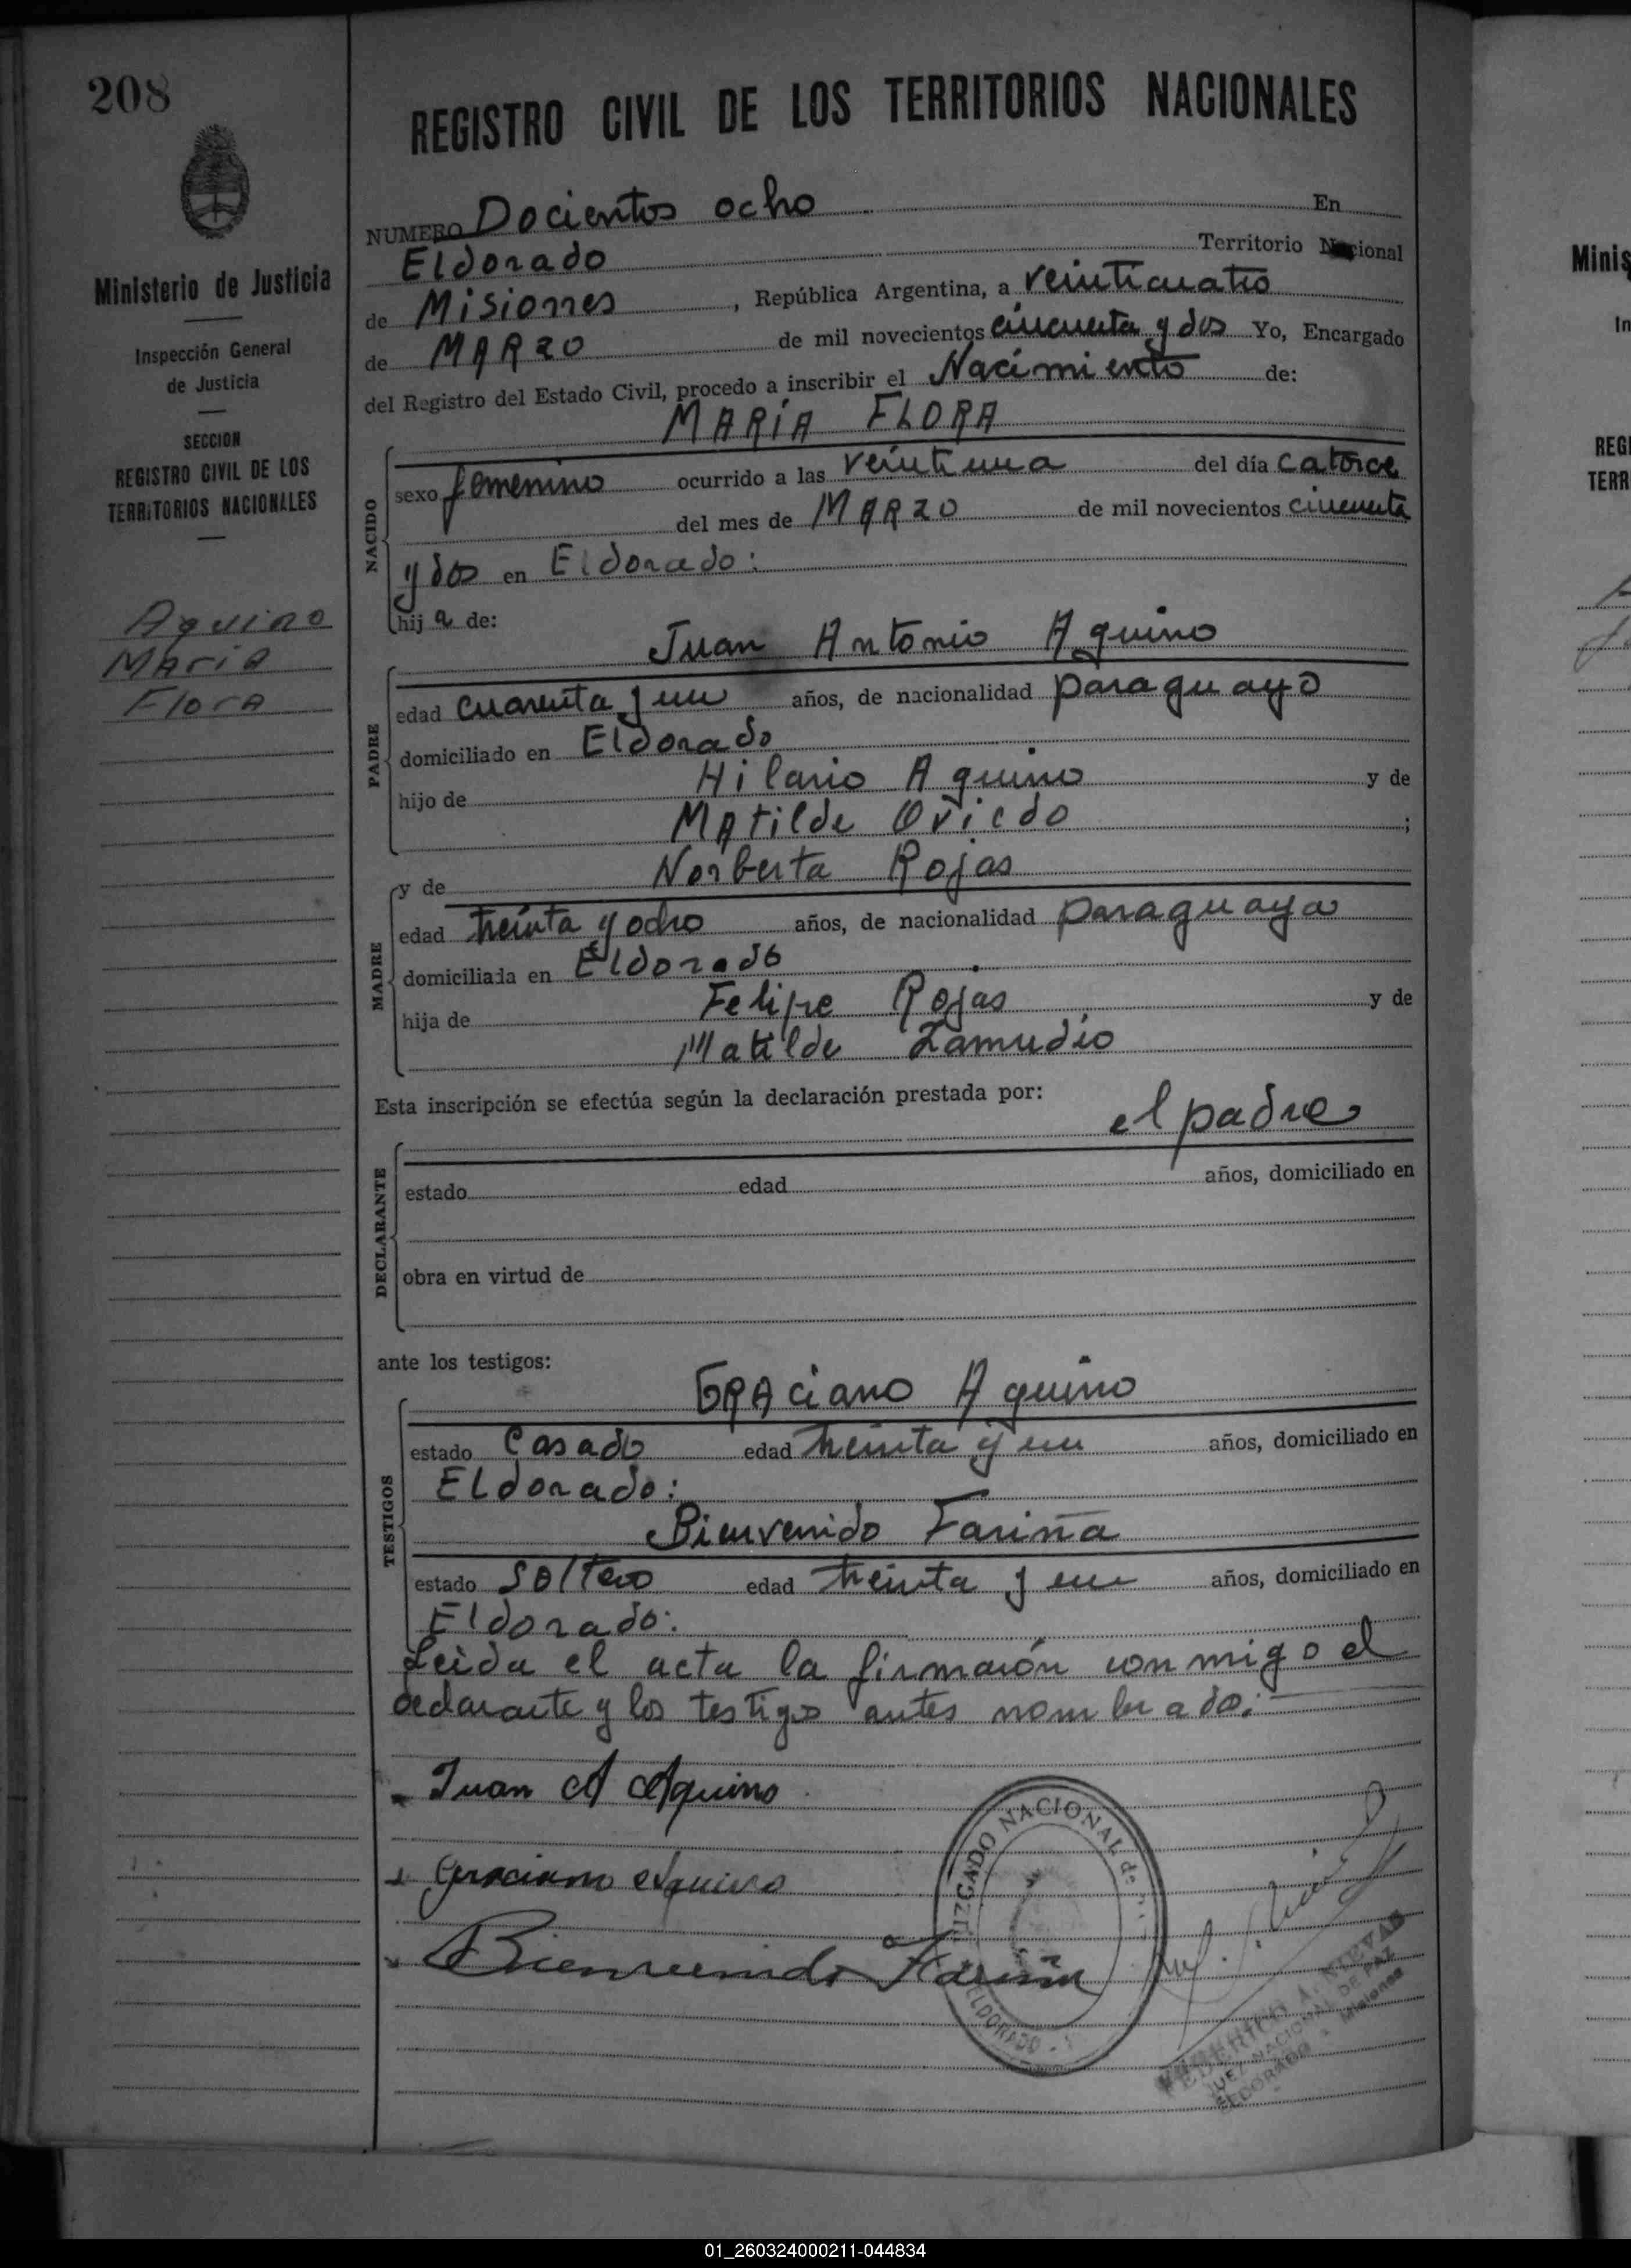 208
Ministerio de Justicia
Inspección General
de Justicia
SECCION
REGISTRO CIVIL DE LOS
TERRITORIOS NACIONALES
Aquino
Maria
Flora
REGISTRO CIVIL DE LOS TERRITORIOS NACIONALES
NUMERO Docientos ocho En
Eldorado Territorio Nacional
de Misiones, República Argentina, a veinticuatro
de MARZO de mil novecientos cincuenta y dos Yo, Encargado
del Registro del Estado Civil, procedo a inscribir el Nacimiento de:
MARÍA FLORA
NACIDO
sexo femenino ocurrido a las veintiuna del día catorce
del mes de MARZO de mil novecientos cincuenta
y dos en Eldorado:
hija de:
Juan Antonio Aquino
PADRE
edad cuarenta y un años, de nacionalidad paraguayo
domiciliado en Eldorado
hijo de Hilario Aquino y de
Matilde Oviedo ;
y de Norberta Rojas
MADRE
edad treinta y ocho años, de nacionalidad paraguaya
domiciliada en Eldorado
hija de Felipe Rojas y de
Matilde Zamudio
Esta inscripción se efectúa según la declaración prestada por:
el padre
DECLARANTE
estado edad años, domiciliado en
obra en virtud de
ante los testigos:
GRAciano Aquino
TESTIGOS
estado Casado edad treinta y un años, domiciliado en
Eldorado:
Bienvenido Fariña
estado Soltero edad treinta y un años, domiciliado en
Eldorado:
Leida el acta la firmarón conmigo el
declarante y los testigos antes nombrado:
Juan A Aquino
Graciano Aquino
Bienvenido Fariña
JUZGADO NACIONAL de
ELDORADO
FEDERICO A. NIEVAS
JUEZ NACIONAL DE PAZ
ELDORADO - Misiones
Minis
In
REGI
TERR
01_260324000211-044834